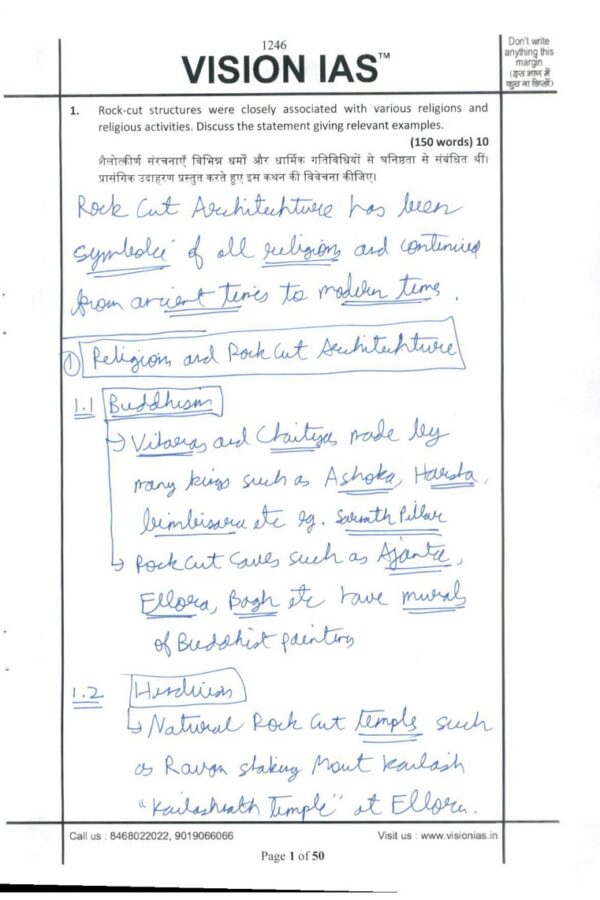 1246
VISION IAS™
Don't write
anything this
margin
(इस भाग में
कुछ ना लिखें)
1. Rock-cut structures were closely associated with various religions and
religious activities. Discuss the statement giving relevant examples.
(150 words) 10
शैलोत्कीर्ण संरचनाएँ विभिन्न धर्मों और धार्मिक गतिविधियों से घनिष्ठता से संबंधित थीं।
प्रासंगिक उदाहरण प्रस्तुत करते हुए इस कथन की विवेचना कीजिए।
Rock Cut Architechture has been
symbolic of all religions and continued
from ancient times to modern times.
① Religion and Rock Cut Architechture
1.1 Buddhism
→ Viharas and Chaityas made by
many kings such as Ashoka, Harsha,
bimbisara etc eg. Sarnath Pillar
→ Rock Cut Caves such as Ajanta,
Ellora, Bagh etc have murals
of Buddhist painting
1.2 Hinduism
→ Natural Rock Cut temple such
as Ravan shaking Mout Kailash
"Kailashnath Temple" at Ellora.
Call us : 8468022022, 9019066066
Visit us : www.visionias.in
Page 1 of 50